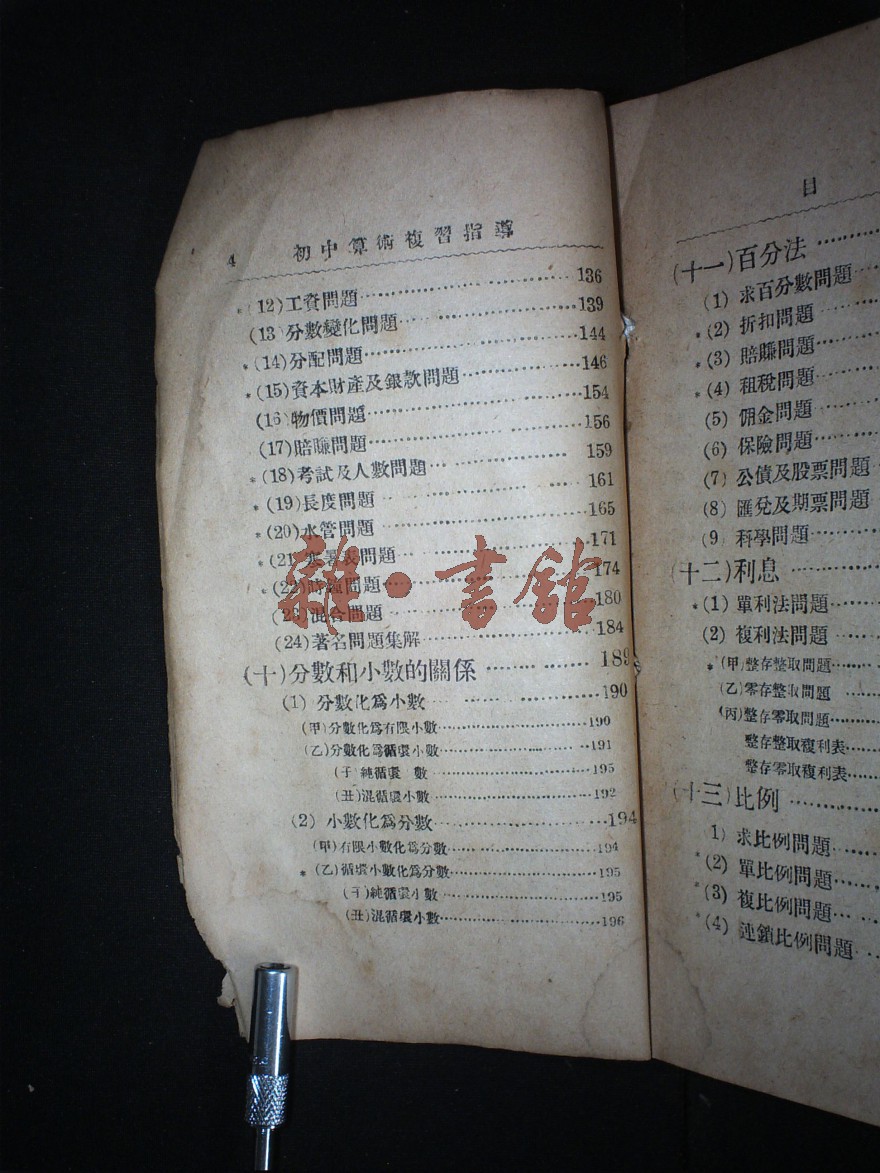 4 初中算術複習指導
*(12)工資問題 136
(13)分數變化問題 139
*(14)分配問題 144
*(15)資本財產及銀款問題 146
(16)物價問題 154
(17)賠賺問題 156
*(18)考試及人數問題 159
*(19)長度問題 161
*(20)水管問題 165
*(21)寒暑表問題 171
*(22)時鐘問題 174
(23)混合問題 180
(24)著名問題集解 184
(十)分數和小數的關係 189
(1) 分數化爲小數 190
(甲)分數化爲有限小數 190
(乙)分數化爲循環小數 191
(子)純循環 數 195
(丑)混循環小數 192
(2) 小數化爲分數 194
(甲)有限小數化爲分數 194
*(乙)循環小數化爲分數 195
(子)純循環小數 195
(丑)混循環小數 196
目
(十一)百分法
(1) 求百分數問題
*(2) 折扣問題
*(3) 賠賺問題
*(4) 租稅問題
(5) 佣金問題
(6) 保險問題
(7) 公債及股票問題
(8) 匯兌及期票問題
(9) 科學問題
(十二)利息
*(1) 單利法問題
(2) 複利法問題
*(甲)整存整取問題
(乙)零存整取問題
(丙)整存零取問題
整存整取複利表
整存零取複利表
(十三)比例
1) 求比例問題
*(2) 單比例問題
*(3) 複比例問題
(4) 連鎖比例問題
雜·書館